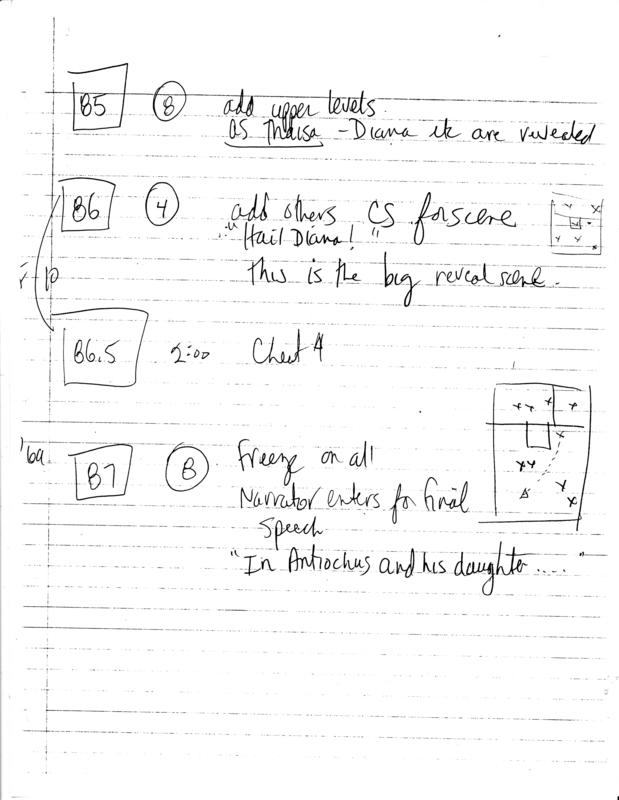 B5 8 add upper levels
as Thaisa - Diana etc are revealed
B6 4 add others CS for scene
"Hail Diana!"
this is the big reveal scene.
10
B6.5 2:00 Cheat 4
B7 8 freeze on all
Narrator enters for final
Speech
"In Antiochus and his daughter...."